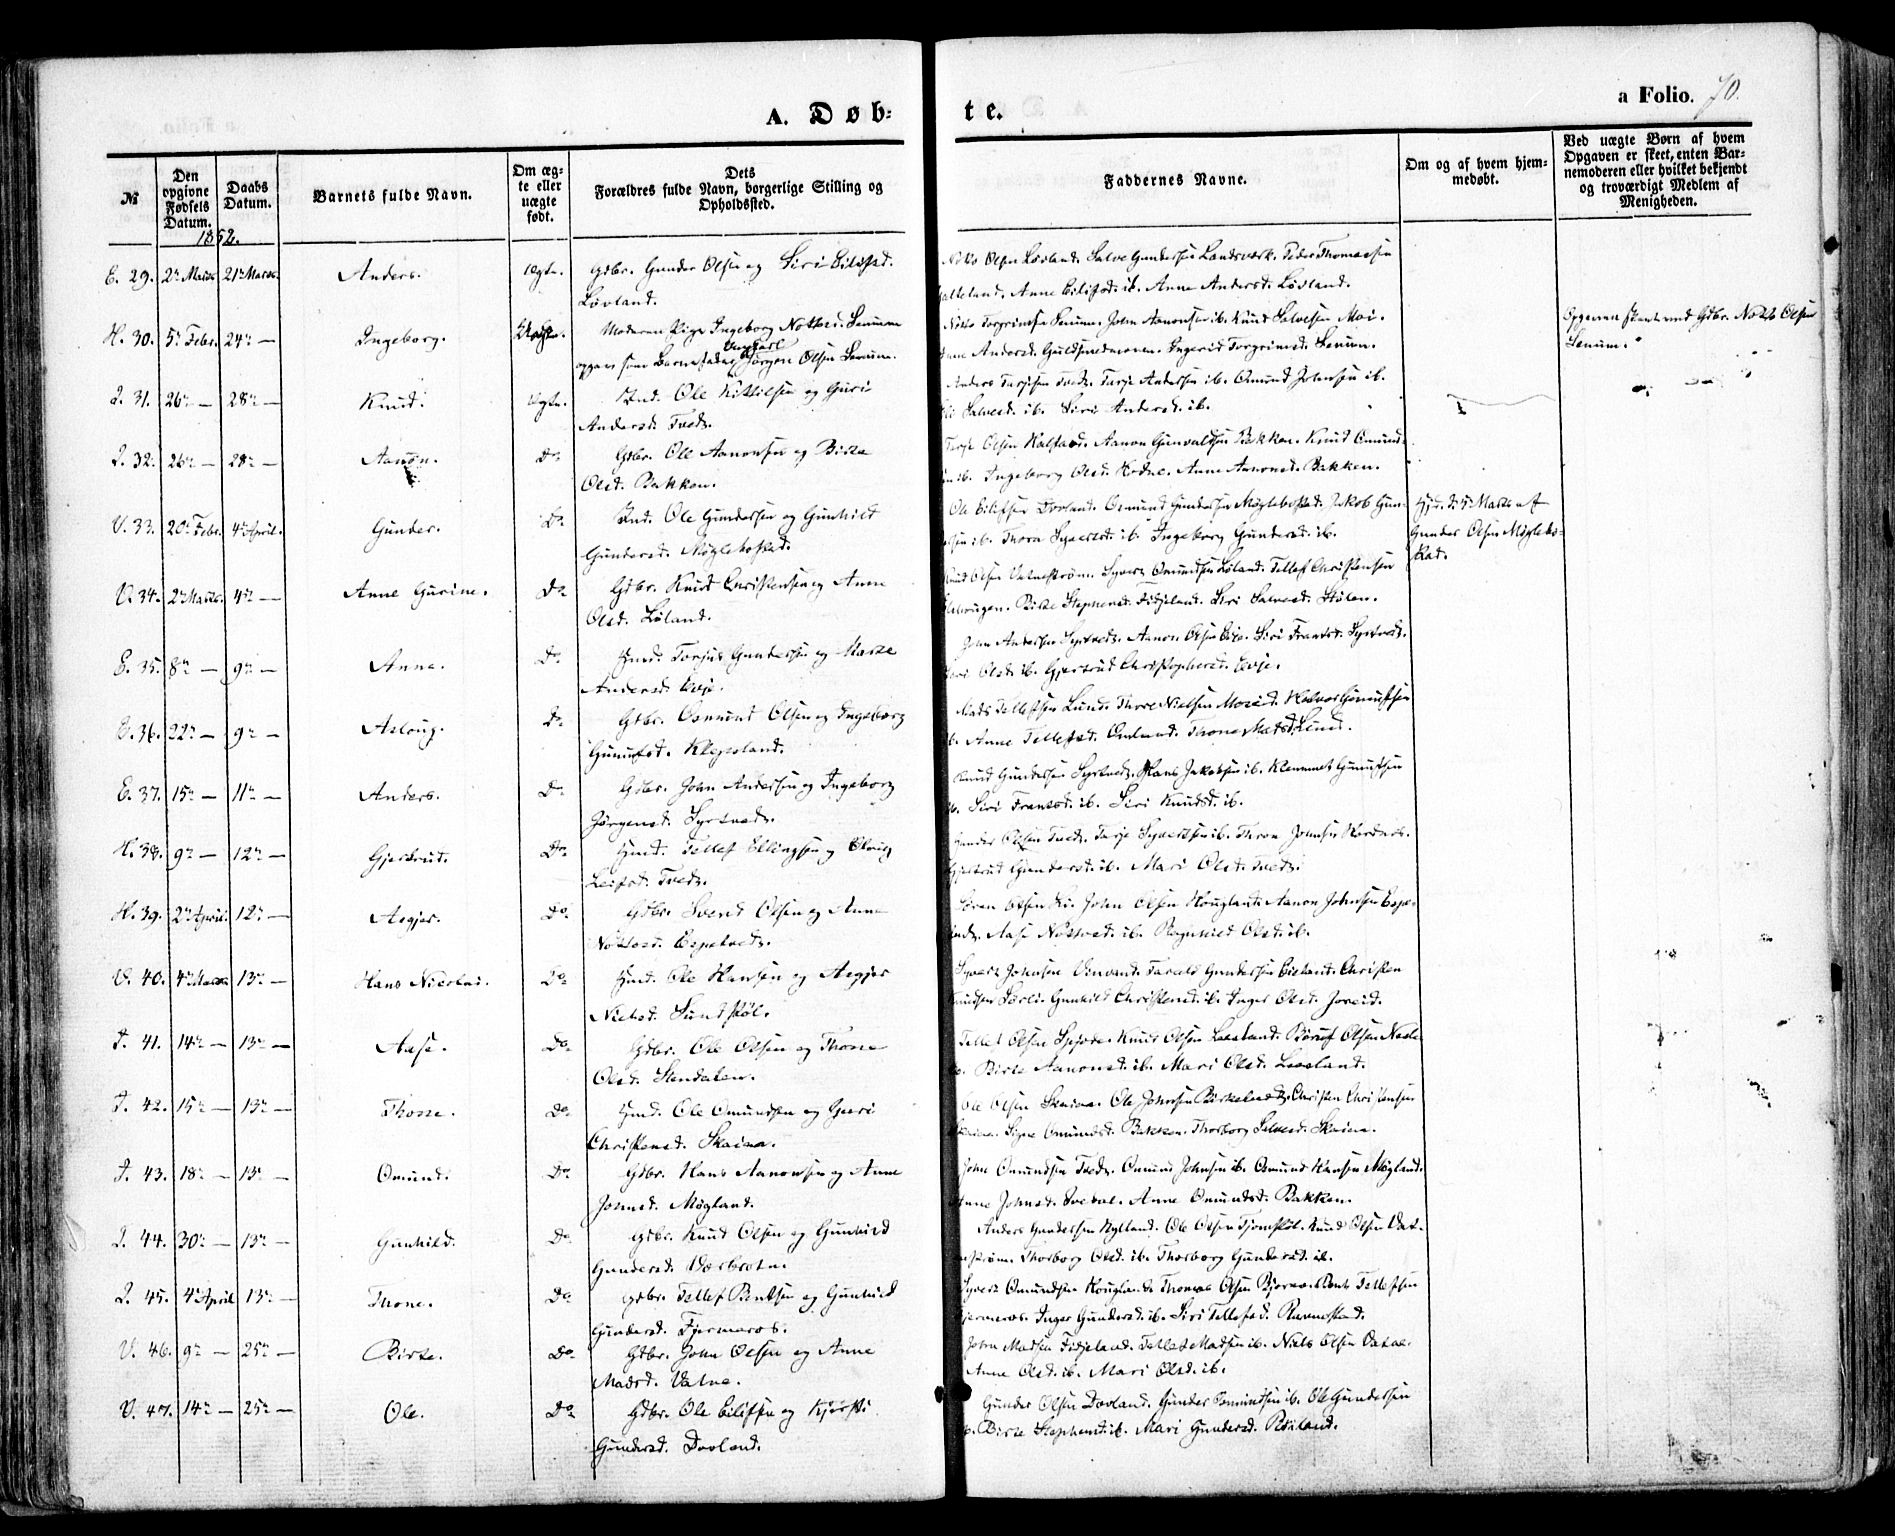 a Folio. 70.
A. Døb-
te.
No
Den opgivne Fødsels Datum.
Daabs Datum.
Barnets fulde Navn.
Om ægte eller uægte født.
Dets Forældres fulde Navn, borgerlige Stilling og Opholdssted.
Faddernes Navne.
Om og af hvem hjemmedøbt.
Ved uægte Børn af hvem Opgaven er skeet, enten Barnemoderen eller hvilket bekjendt og troværdigt Medlem af Menigheden.
1852.
E. 29. 2 Marts 21 Marts. Anders. Ægte. Gdbr. Gunder Olsen og Siri Eilifsd.
Løvland.
Olsen Løvland. Salve Gundersen Landsværk. Peder Thomassen
Anne Eilifsd. ib. Anne Andersd. Løvland.
H. 30. 5 Febr. 24 — Ingeborg. Moderen Pige Ingeborg Senum
opgav som Barnefader Ungkarl Jørgen Olsen Senum.
Torgrimsen Senum. John Aanonsen ib. Knud Salvesen Moi.
Andersd. Ingerid Torgrimsd. Senum.
Opgaven skeet ved Gdbr. Olsen
Senum.
I. 31. 26 — 28 — Knud. Ægte. Ind. Ole Kittilsen og Guri
Andersd. Tveds.
Anders Terjesen Tveds. Terje Andersen ib. Omund Johnsen ib.
Salvesd. ib. Siri Andersd. ib.
I. 32. 26 — 28 — Aanon. Do Gdbr. Ole Aanonsen og Birte
Olsd. Bakken.
Terje Olsen Aanon Gunvaldsen Bakken. Knud Omunds-
ib. Ingeborg Olsd. Anne Aanonsd. Bakken.
V. 33. 20 Febr. 4 April. Gunder. Do Ind. Ole Gundersen og Gunhild
Gundersd. Møglebostad.
Ole Eilifsen Dovland. Osmund Gundersen Møglebostad. Jakob Gun-
ib. Thorn Syvertsd. ib. Ingeborg Gundersd. ib.
Hjd. d. Marts af
Gunder Olsen Møglebo-
stad.
V. 34. 2 Marts. 4 — Anne Gurine. Do Gdbr. Knud Christensen og Anne
Olsd. Løland.
Olsen Vatnestrøm. Syvert Omundsen Løland. Tellef Christensen
Birte Stephensd. Fidjeland. Siri Salvesd. Stølen.
E. 35. 8 — 9 — Anne. Do Torjus Gundersen og Marte
Andersd. Evje.
John Andersen Syrtveds. Aanon Olsen Evje. Siri Fransd. Syrtveds.
Olsd. ib. Gjertrud Christophersd. Evje.
V. 36. 22 — 9 — Asloug. Do Gdbr. Osmund Olsen og Ingeborg
Klepsland.
Mads Tellefsen Lund. Thore Nielsen Moseid.
Anne Tellefsd. Thone Madsd. Lund.
E. 37. 15 — 11 — Anders. Do Gdbr. John Andersen og Ingeborg
Jørgensd. Syrtveds.
Knud Gundersen Syrtveds. Hans Jakobsen ib. Klemmet
ib. Siri Fransd. ib. Siri Knudsd. ib.
H. 38. 9 — 12 — Gjertrud. Do Tellef Ellingsen og
Leifsd. Tveds.
Gunder Olsen Tveds. Terje Syvertsen ib. Johnsen
Gjertrud Gundersd. ib. Mari Olsd. Tveds.
H. 39. 2 April. 12 — Asgjer. Do Gdbr. Svend Olsen og Anne
Espetveds.
Søren Olsen Li. John Olsen Hougland. Aanon Johnsen Espe-
tveds. Aase ib. Ragnhild Olsd. ib.
V. 40. 4 Marts 13 — Hans Nicolai. Do Ole Hansen og Asgjer
Nielsd. Sundstøl.
Syvert Johnsen Tarald Gundersen Eieland. Christen
Knudsen Gunhild Christensd. ib. Inger Olsd.
I. 41. 14 — 13 — Aase. Do Gdbr. Ole Olsen og Thone
Olsd. Stendalen.
Tellef Olsen Knud Olsen Løvland. Olsen
Birte Aanonsd. ib. Mari Olsd. Løvland.
I. 42. 15 — 13 — Thore. Do Ole Omundsen og Guri
Christensd. Skaiaa.
Ole Olsen Skaiaa. Ole Johnsen Christen Christensen
Skaiaa. Signe Omundsd. Bakken. Thorborg Salvesd. Skaiaa.
I. 43. 18 — 13 — Omund. Do Gdbr. Hans Aanonsen og Anne
Johnsd. Møgland.
John Omundsen Tveds. Omund Johnsen ib. Osmund Hansen Møgland.
Anne Johnsd. Anne Omundsd. Bakken.
I. 44. 30 — 13 — Gunhild. Do Gdbr. Knud Olsen og Gunhild
Gundersd.
Anders Gundersen Nylland. Ole Olsen Tjomstøl. Knud Olsen Vat-
nestrøm. Thorborg Olsd. ib. Thorborg Gundersd. ib.
I. 45. 4 April 13 — Thone. Do Gdbr. Tellef Bentsen og Gunhild
Gundersd. Fjermeros.
Syvert Omundsen Hougland. Thomas Olsen Bent Tellefsen
Fjermeros. Inger Gundersd. ib. Siri Tellefsd.
V. 46. 9 — 25 — Birte. Do Gdbr. John Olsen og Anne
Madsd. Vatne.
John Madsen Fidjeland. Tellef Madsen ib. Niels Olsen Vatne.
Anne Olsd. ib. Mari Olsd. ib.
V. 47. 14 — 25 — Ole. Do Gdbr. Ole Eilifsen og Kjersti
Gundersd. Dovland.
Gunder Olsen Dovland. Gunder ib. Ole Gundersen
Birte Stephensd. ib. Mari Gundersd.